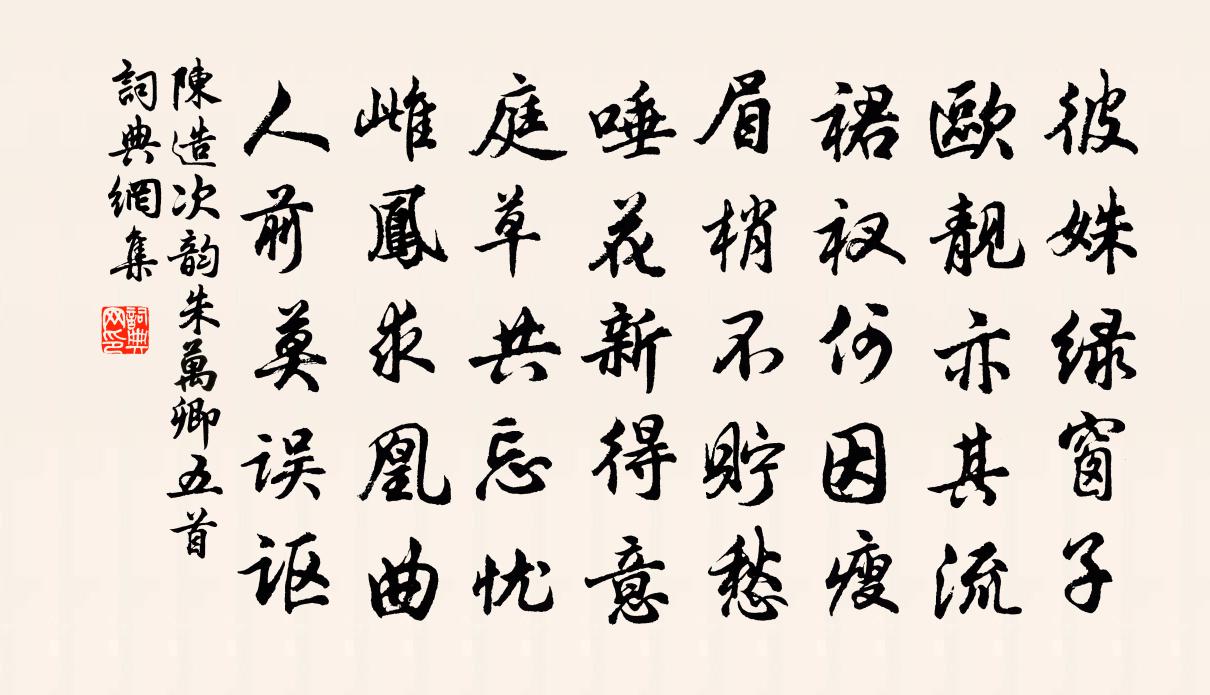 彼姝绿窗子
歐靓亦其流
裙衩何因瘦
眉梢不贮愁
唾花新得意
庭草共忘忧
雌鳳求凰曲
人前莫误讴
陳造次韵朱萬卿五首
詞典網集
詞典网印